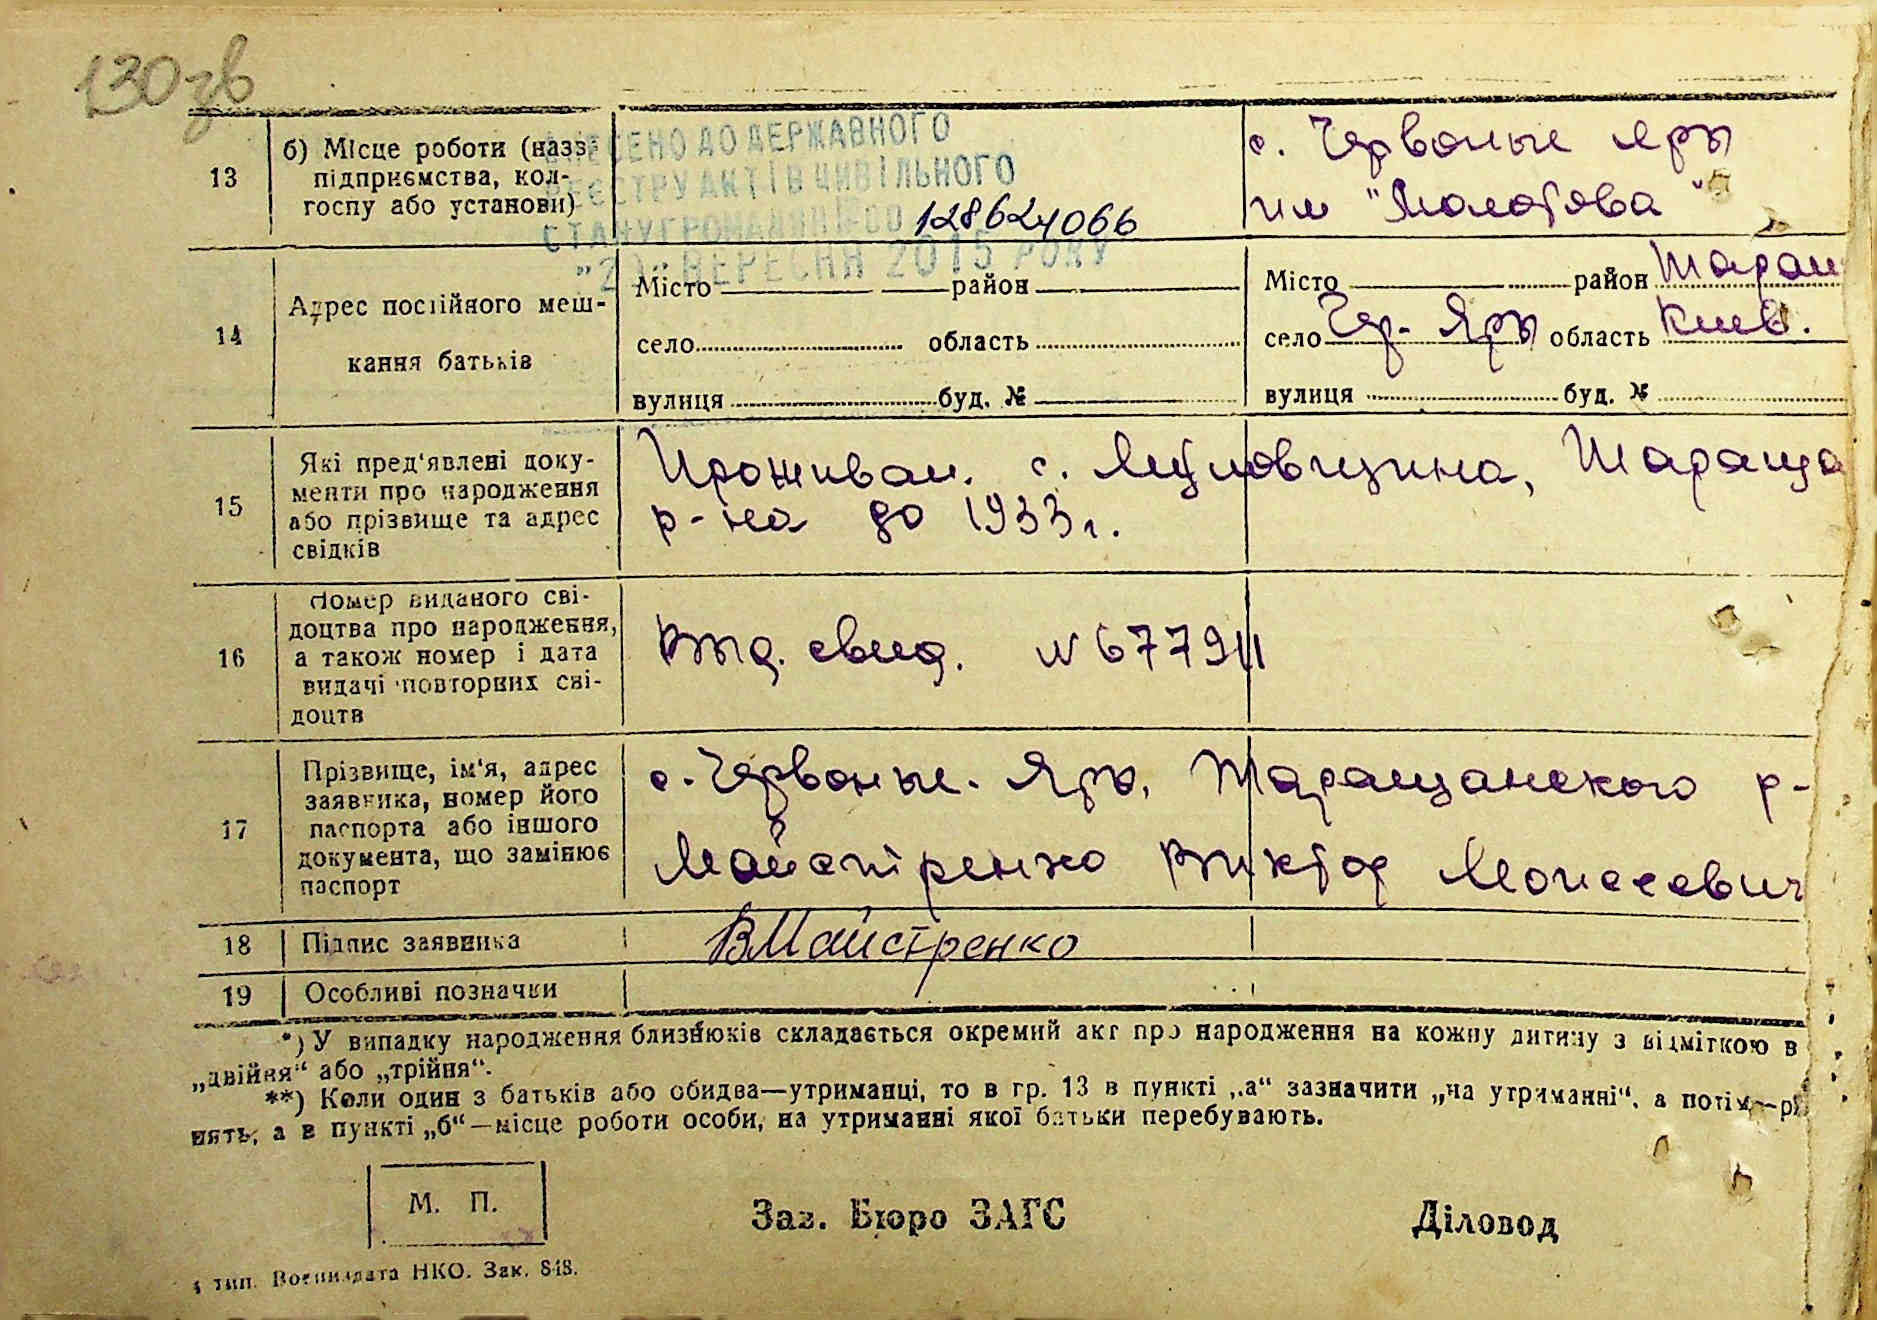 130 зв
13 б) Місце роботи (назв. підприємства, кол-госпу або установи)
ВНЕСЕНО ДО ДЕРЖАВНОГО
РЕЄСТРУ АКТІВ ЦИВІЛЬНОГО
СТАНУ ГРОМАДЯН № 00128624066
ВЕРЕСНЯ 2015 РОКУ
с. Червоные яры
им "Молотова"
14 Адрес постійного меш-
кання батьків
Місто район
село область
вулиця буд. №
Місто район Таращ
село Чер. Яры область Киев.
вулиця буд. №
15 Які пред'явлені доку-
менти про народження
або прізвище та адрес
свідків
Проживал. с. Лукловщина, Тараща
р-на до 1933 г.
16 Номер виданого сві-
доцтва про народження,
а також номер і дата
видачі повторних сві-
доцтв
Выд. свид. № 677911
17 Прізвище, ім'я, адрес
заявника, номер його
паспорта або іншого
документа, що замінює
паспорт
с. Червоные. Яры, Таращанского р-
Майстренко Виктор Моисеевич
18 Підпис заявника ВМайстренко
19 Особливі позначки
*) У випадку народження близнюків складається окремий акт про народження на кожну дитину з відміткою в
„двійня“ або „трійня“.
**) Коли один з батьків або обидва—утриманці, то в гр. 13 в пункті „а“ зазначити „на утриманні“, а потім—рі
нять, а в пункті „б“—місце роботи особи, на утриманні якої батьки перебувають.
М. П.
Зав. Бюро ЗАГС Діловод
тип. Воениздата НКО. Зак. 848.